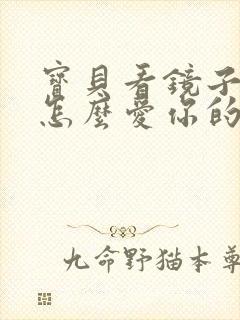 寶貝看鏡子
怎麼愛你的
九命野猫本尊